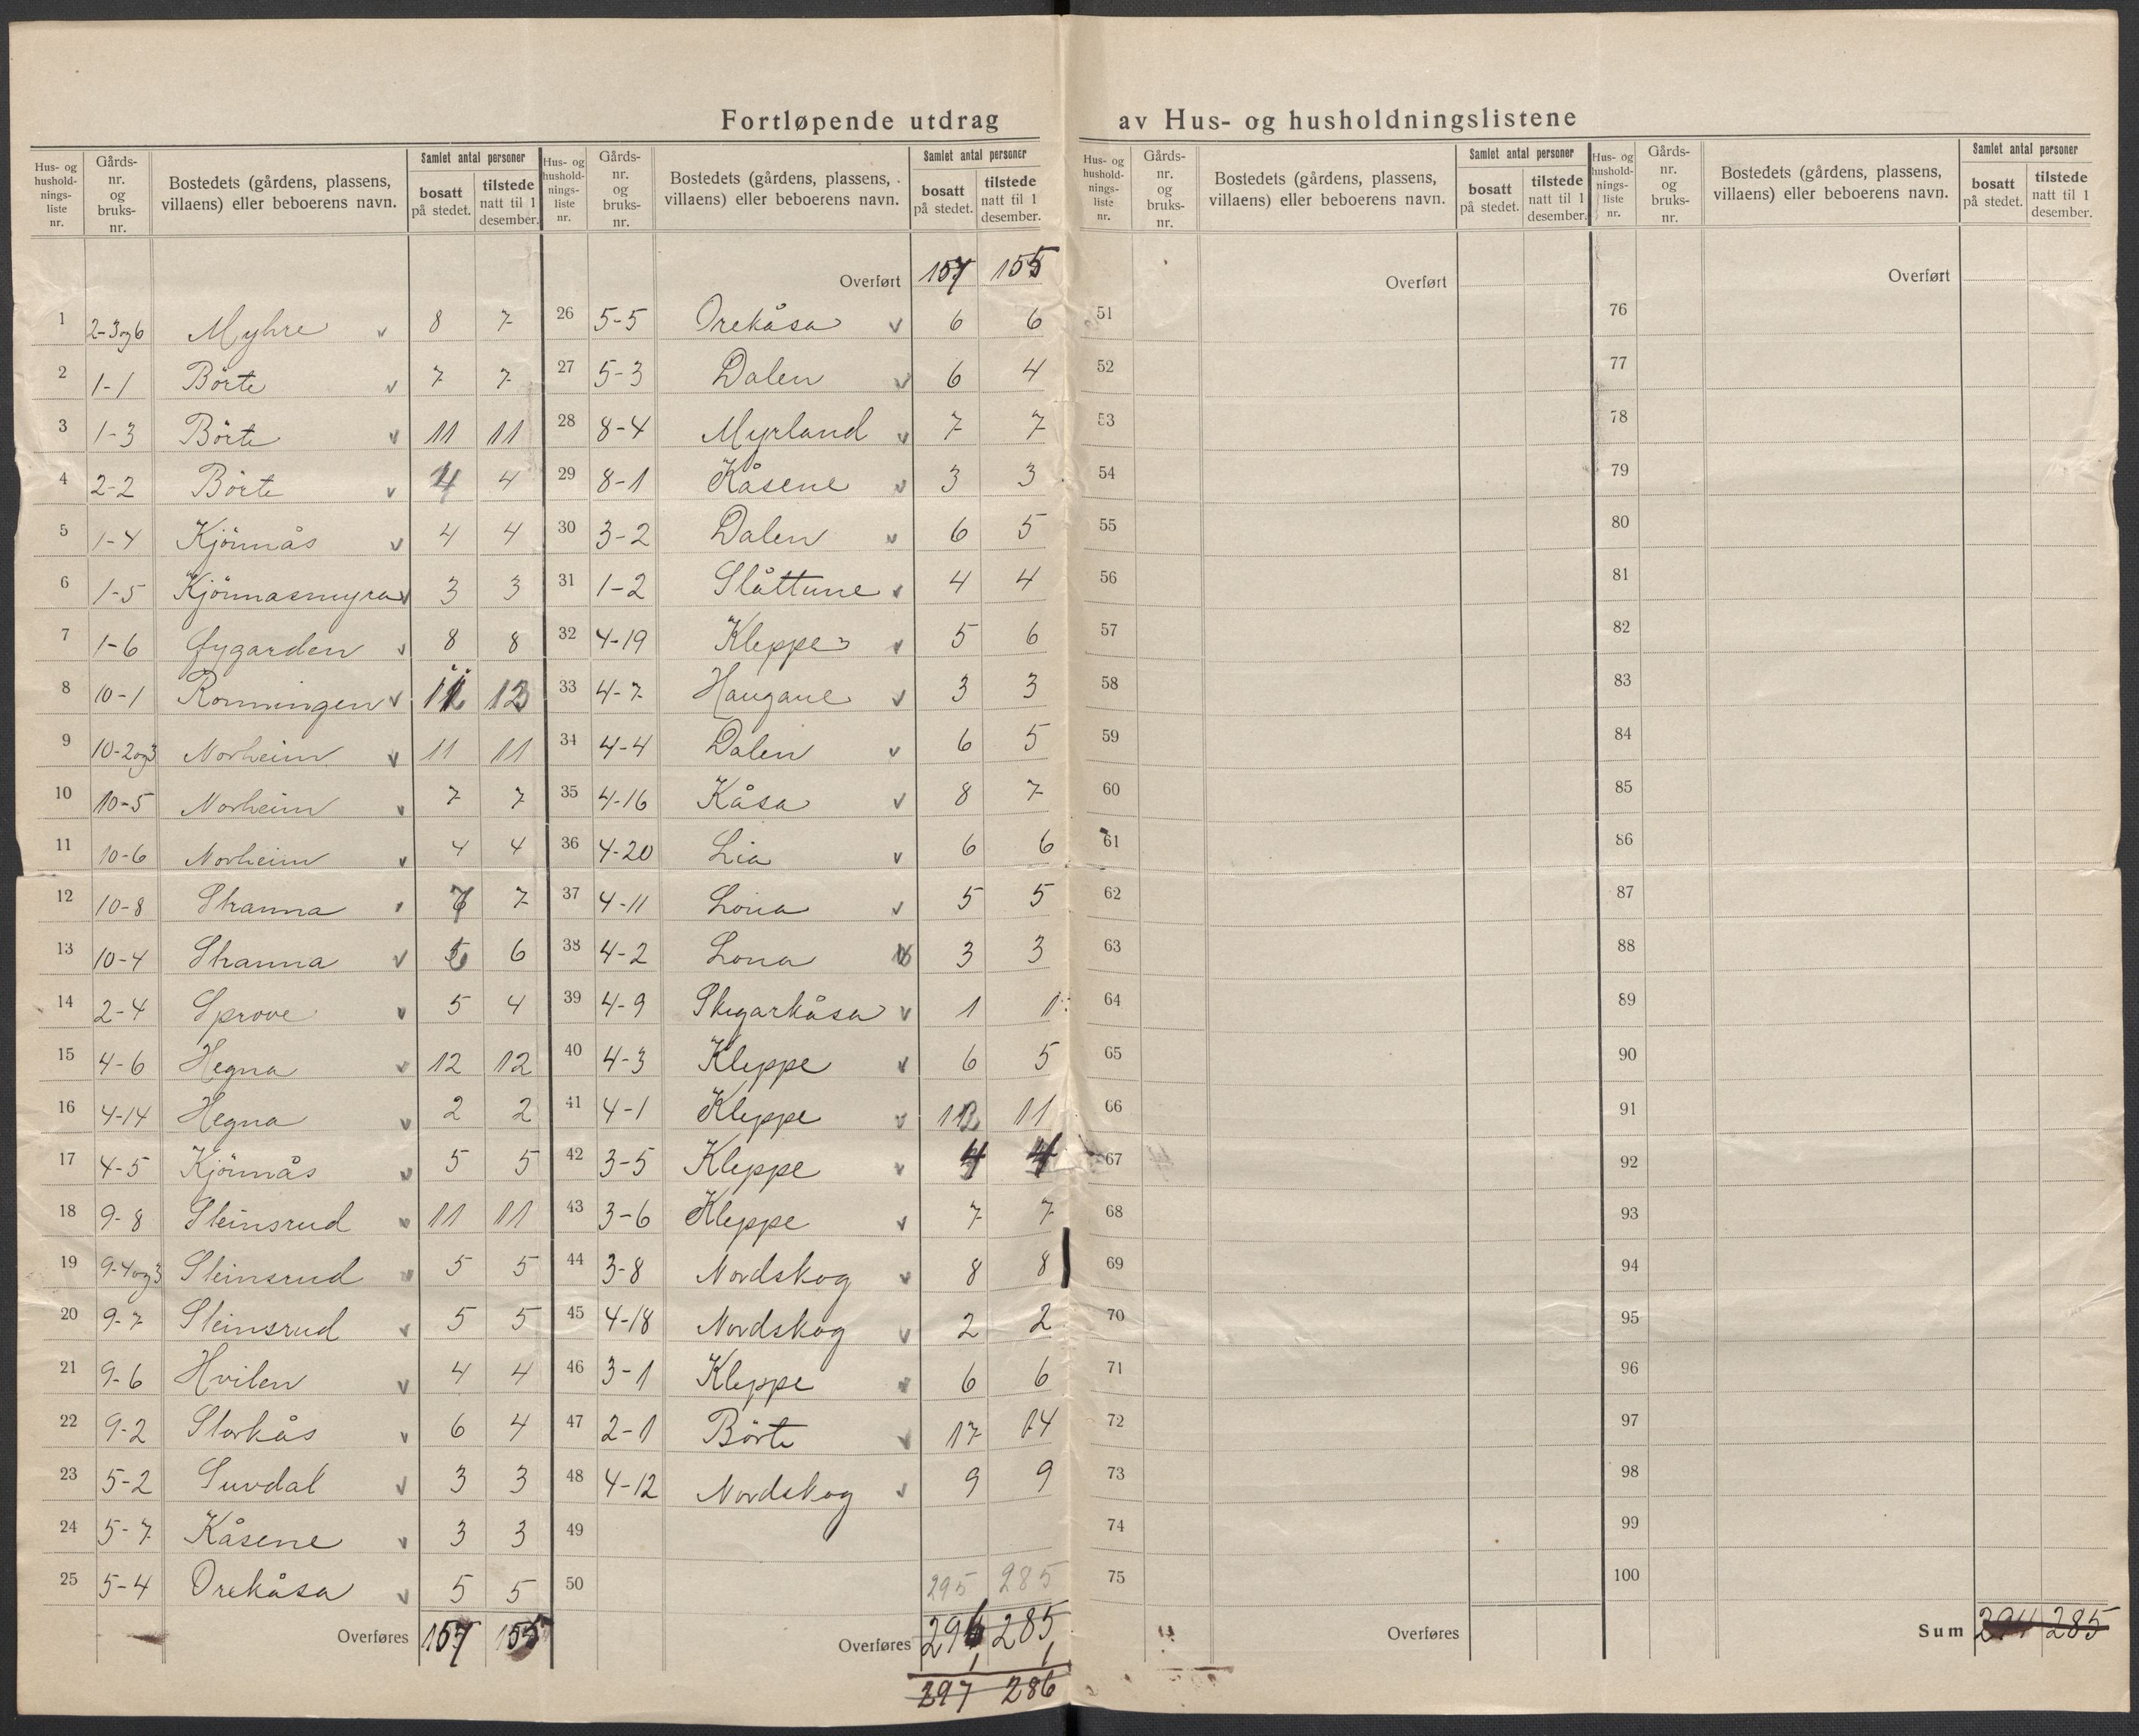 Fortløpende utdrag av Hus- og husholdningslistene
Hus- og hushold-nings-liste nr. Gårds-nr. og bruks-nr. Bostedets (gårdens, plassens, villaens) eller beboerens navn. Samlet antal personer bosatt på stedet. tilstede natt til 1 desember.
1 2-3og6 Myhre v 8 7
2 1-1 Börte v 7 7
3 1-3 Börte v 11 11
4 2-2 Börte v 4 4
5 1-4 Kjönnås v 4 4
6 1-5 Kjönnasmyra v 3 3
7 1-6 Øygarden v 8 8
8 10-1 Rönningen v 12 13
9 10-2og3 Norheim v 11 11
10 10-5 Norheim v 7 7
11 10-6 Norheim v 4 4
12 10-8 Skanna 7 7
13 10-4 Skanna v 6 6
14 2-4 Sprove v 5 4
15 4-6 Hegna v 12 12
16 4-14 Hegna v 2 2
17 4-5 Kjönnås v 5 5
18 9-8 Steinsrud v 11 11
19 9-4og3 Steinsrud v 5 5
20 9-7 Steinsrud v 5 5
21 9-6 Hvilen v 4 4
22 9-2 Storkås v 6 4
23 5-2 Suvdal v 3 3
24 5-7 Kåsene v 3 3
25 5-4 Orekåsa v 5 5
Overføres 157 155
Hus- og hushold-nings-liste nr. Gårds-nr. og bruks-nr. Bostedets (gårdens, plassens, villaens) eller beboerens navn. Samlet antal personer bosatt på stedet. tilstede natt til 1 desember.
Overført 157 155
26 5-5 Orekåsa v 6 6
27 5-3 Dalen v 6 4
28 8-4 Myrland v 7 7
29 8-1 Kåsene v 3 3
30 3-2 Dalen v 6 5
31 1-2 Slåttune v 4 4
32 4-19 Kleppe v 5 6
33 4-7 Haugane v 3 3
34 4-4 Dalen v 6 5
35 4-16 Kåsa v 8 7
36 4-20 Lia v 6 6
37 4-11 Lona v 5 5
38 4-2 Lona v 3 3
39 4-9 Skygarkåsa v 1 1
40 4-3 Kleppe v 6 5
41 4-1 Kleppe v 12 11
42 3-5 Kleppe v 4 4
43 3-6 Kleppe v 7 7
44 3-8 Nordskog v 8 8
45 4-18 Nordskog v 2 2
46 3-1 Kleppe v 6 6
47 2-1 Börte v 17 14
48 4-12 Nordskog v 9 9
49
50 295 285
Overføres 296 285
1 1
297 286
Hus- og hushold-nings-liste nr. Gårds-nr. og bruks-nr. Bostedets (gårdens, plassens, villaens) eller beboerens navn. Samlet antal personer bosatt på stedet. tilstede natt til 1 desember.
Overført
51
52
53
54
55
56
57
58
59
60
61
62
63
64
65
66
67
68
69
70
71
72
73
74
75
Overføres
Hus- og hushold-nings-liste nr. Gårds-nr. og bruks-nr. Bostedets (gårdens, plassens, villaens) eller beboerens navn. Samlet antal personer bosatt på stedet. tilstede natt til 1 desember.
Overført
76
77
78
79
80
81
82
83
84
85
86
87
88
89
90
91
92
93
94
95
96
97
98
99
100
Sum 294 285